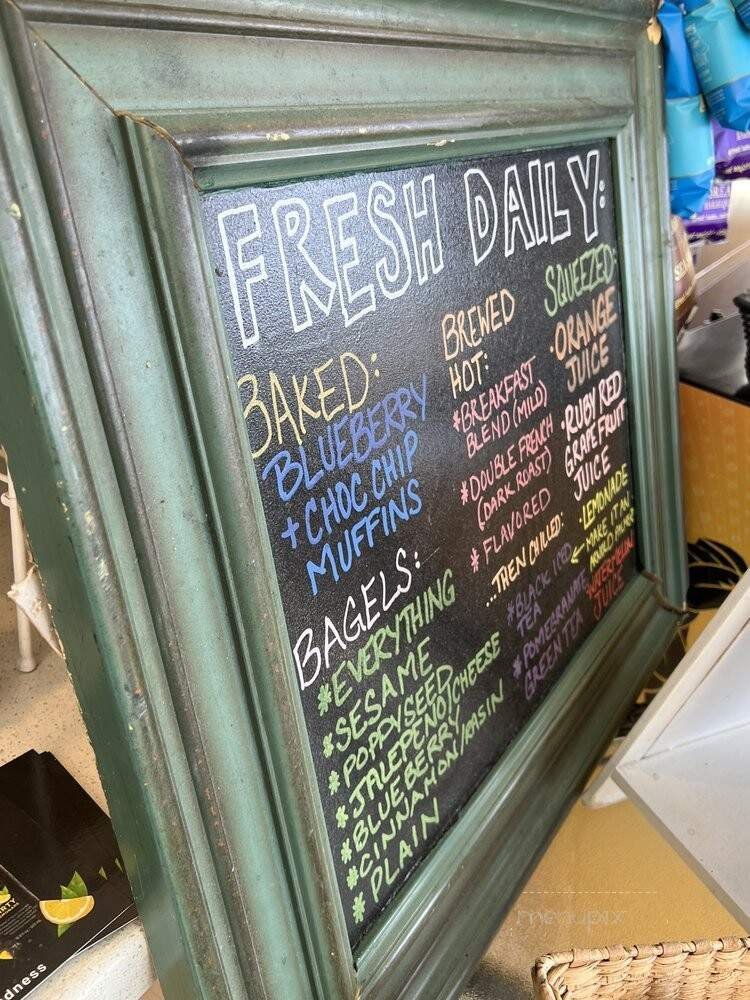 FRESH DAILY:
BAKED:
BLUEBERRY
+ CHOC CHIP
MUFFINS
BAGELS:
*EVERYTHING
*SESAME
*POPPYSEED
*JALEPENO/CHEESE
*BLUEBERRY
*CINNAMON/RASIN
*PLAIN
BREWED
HOT:
*BREAKFAST
BLEND (MILD)
*DOUBLE FRENCH
(DARK ROAST)
* FLAVORED
...THEN CHILLED:
*BLACK ICED
TEA
*POMEGRANATE
GREEN TEA
SQUEEZED:
·ORANGE
JUICE
·RUBY RED
GRAPEFRUIT
JUICE
·LEMONADE
← MAKE IT AN
ARNOLD PALMER
WATERMELON
JUICE
dness
menupix